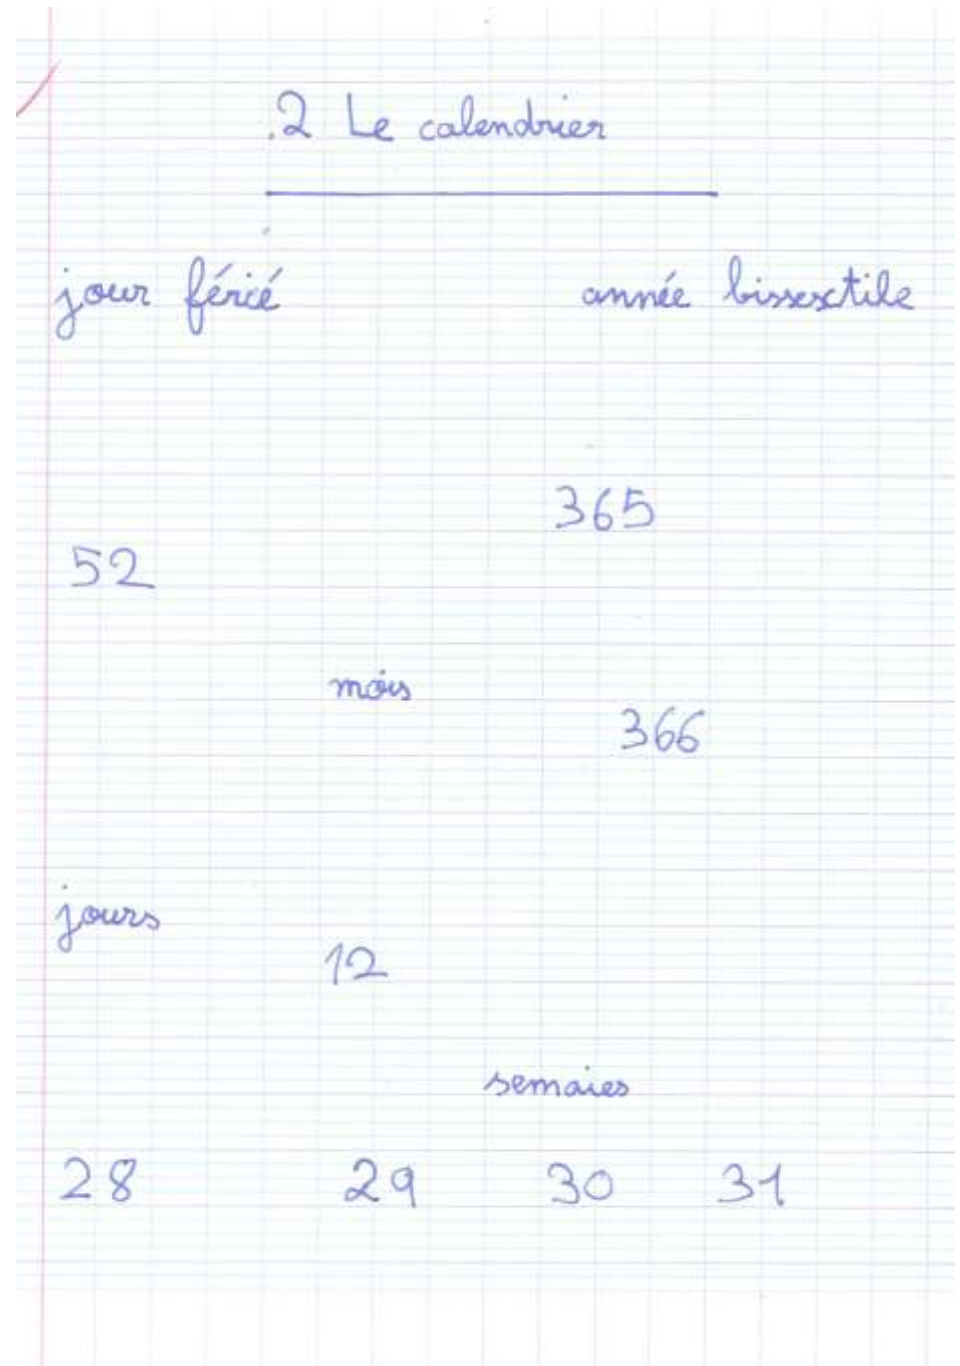 .2 Le calendrier
jour férié année bissextile
365
52
mois
366
jours
12
semaies
28 29 30 31